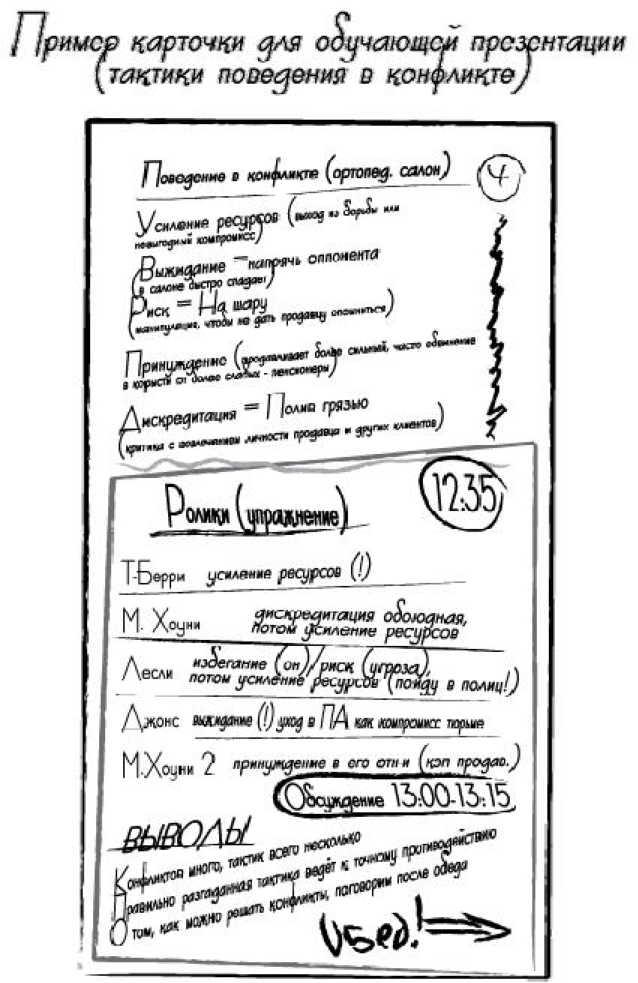 Пример карточки для обучающей презентации
(тактики поведения в конфликте)
Поведение в конфликте (ортопед. салон)
4
Усиление ресурсов (выход из борьбы или
невыгодный компромисс)
Выжидание = напрячь оппонента
(в салоне быстро спадает)
Риск = На шару
(манипуляция, чтобы не дать продавцу опомниться)
Принуждение (продавливает более сильный, часто обвинение
в корысти от более слабых - пенсионеры)
Дискредитация = Полив грязью
(критика с вовлечением личности продавца и других клиентов)
12:35
Ролики (упражнение)
Т-Берри усиление ресурсов (!)
М. Хоуни дискредитация обоюдная,
потом усиление ресурсов
Лесли избегание (он)/риск (угроза),
потом усиление ресурсов (пойду в полиц!)
Джонс выжидание (!) уход в ПА как компромисс тюрьме
М.Хоуни 2 принуждение в его отн-и (кэп продав.)
Обсуждение 13:00-13:15
ВЫВОДЫ
Конфликтов много, тактик всего несколько
Правильно разгаданная тактика ведёт к точному противодействию
О том, как можно решать конфликты, поговорим после обеда